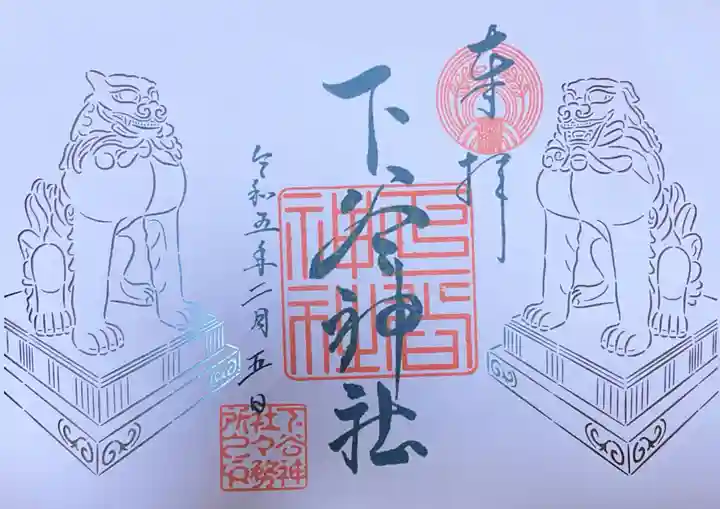 奉拝
下谷神社
令和五年二月五日
下谷神
社々務
所之印